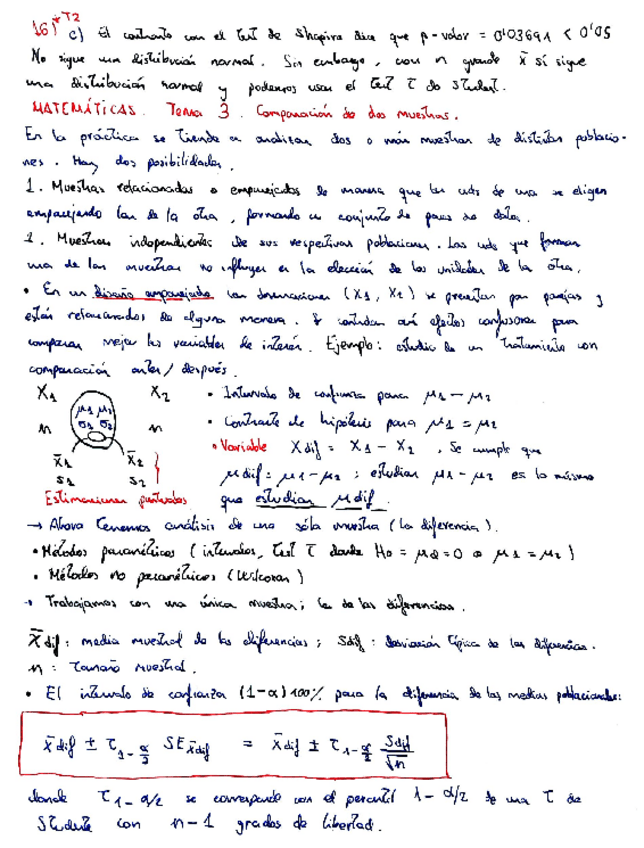 16) * T2
c) El contraste con el test de Shapiro dice que p-valor = 0'03691 < 0'05
No sigue una distribución normal. Sin embargo, con n grande x̄ sí sigue
una distribución normal y podemos usar el test T de Student.
MATEMÁTICAS. Tema 3. Comparación de dos muestras.
En la práctica se tiende a analizar dos o más muestras de distintas poblacio-
nes. Hay dos posibilidades.
1. Muestras relacionadas o emparejadas de manera que las uds de una se eligen
emparejando las de la otra, formando un conjunto de pares de datos.
2. Muestras independientes de sus respectivas poblaciones. Las uds que forman
una de las muestras no influyen en la elección de las unidades de la otra.
• En un diseño emparejado las observaciones (X1, X2) se presentan por parejas y
están relacionados de alguna manera. Se controlan así efectos confusores para
comparar mejor las variables de interés. Ejemplo: estudio de un tratamiento con
comparación antes/después.
X1 X2 • Intervalo de confianza para μ1 - μ2
μ1 μ2
n σ1 σ2 n • Contraste de hipótesis para μ1 = μ2
x̄1 x̄2 • Variable Xdif = X1 - X2, se cumple que
s1 s2 μdif = μ1 - μ2; estudiar μ1 - μ2 es lo mismo
Estimaciones puntuales que estudiar μdif.
→ Ahora tenemos análisis de una sola muestra (la diferencia).
• Métodos paramétricos (intervalos, test T donde H0 = μd = 0 o μ1 = μ2)
• Métodos no paramétricos (Wilcoxon)
→ Trabajamos con una única muestra; la de las diferencias.
x̄dif: media muestral de las diferencias; Sdif: desviación típica de las diferencias.
n: tamaño muestral.
• El intervalo de confianza (1-α)100% para la diferencia de las medias poblacionales:
x̄dif ± T1-α/2 SEx̄dif = x̄dif ± T1-α/2 Sdif/√n
donde T1-α/2 se corresponde con el percentil 1-α/2 de una T de
Student con n-1 grados de libertad.